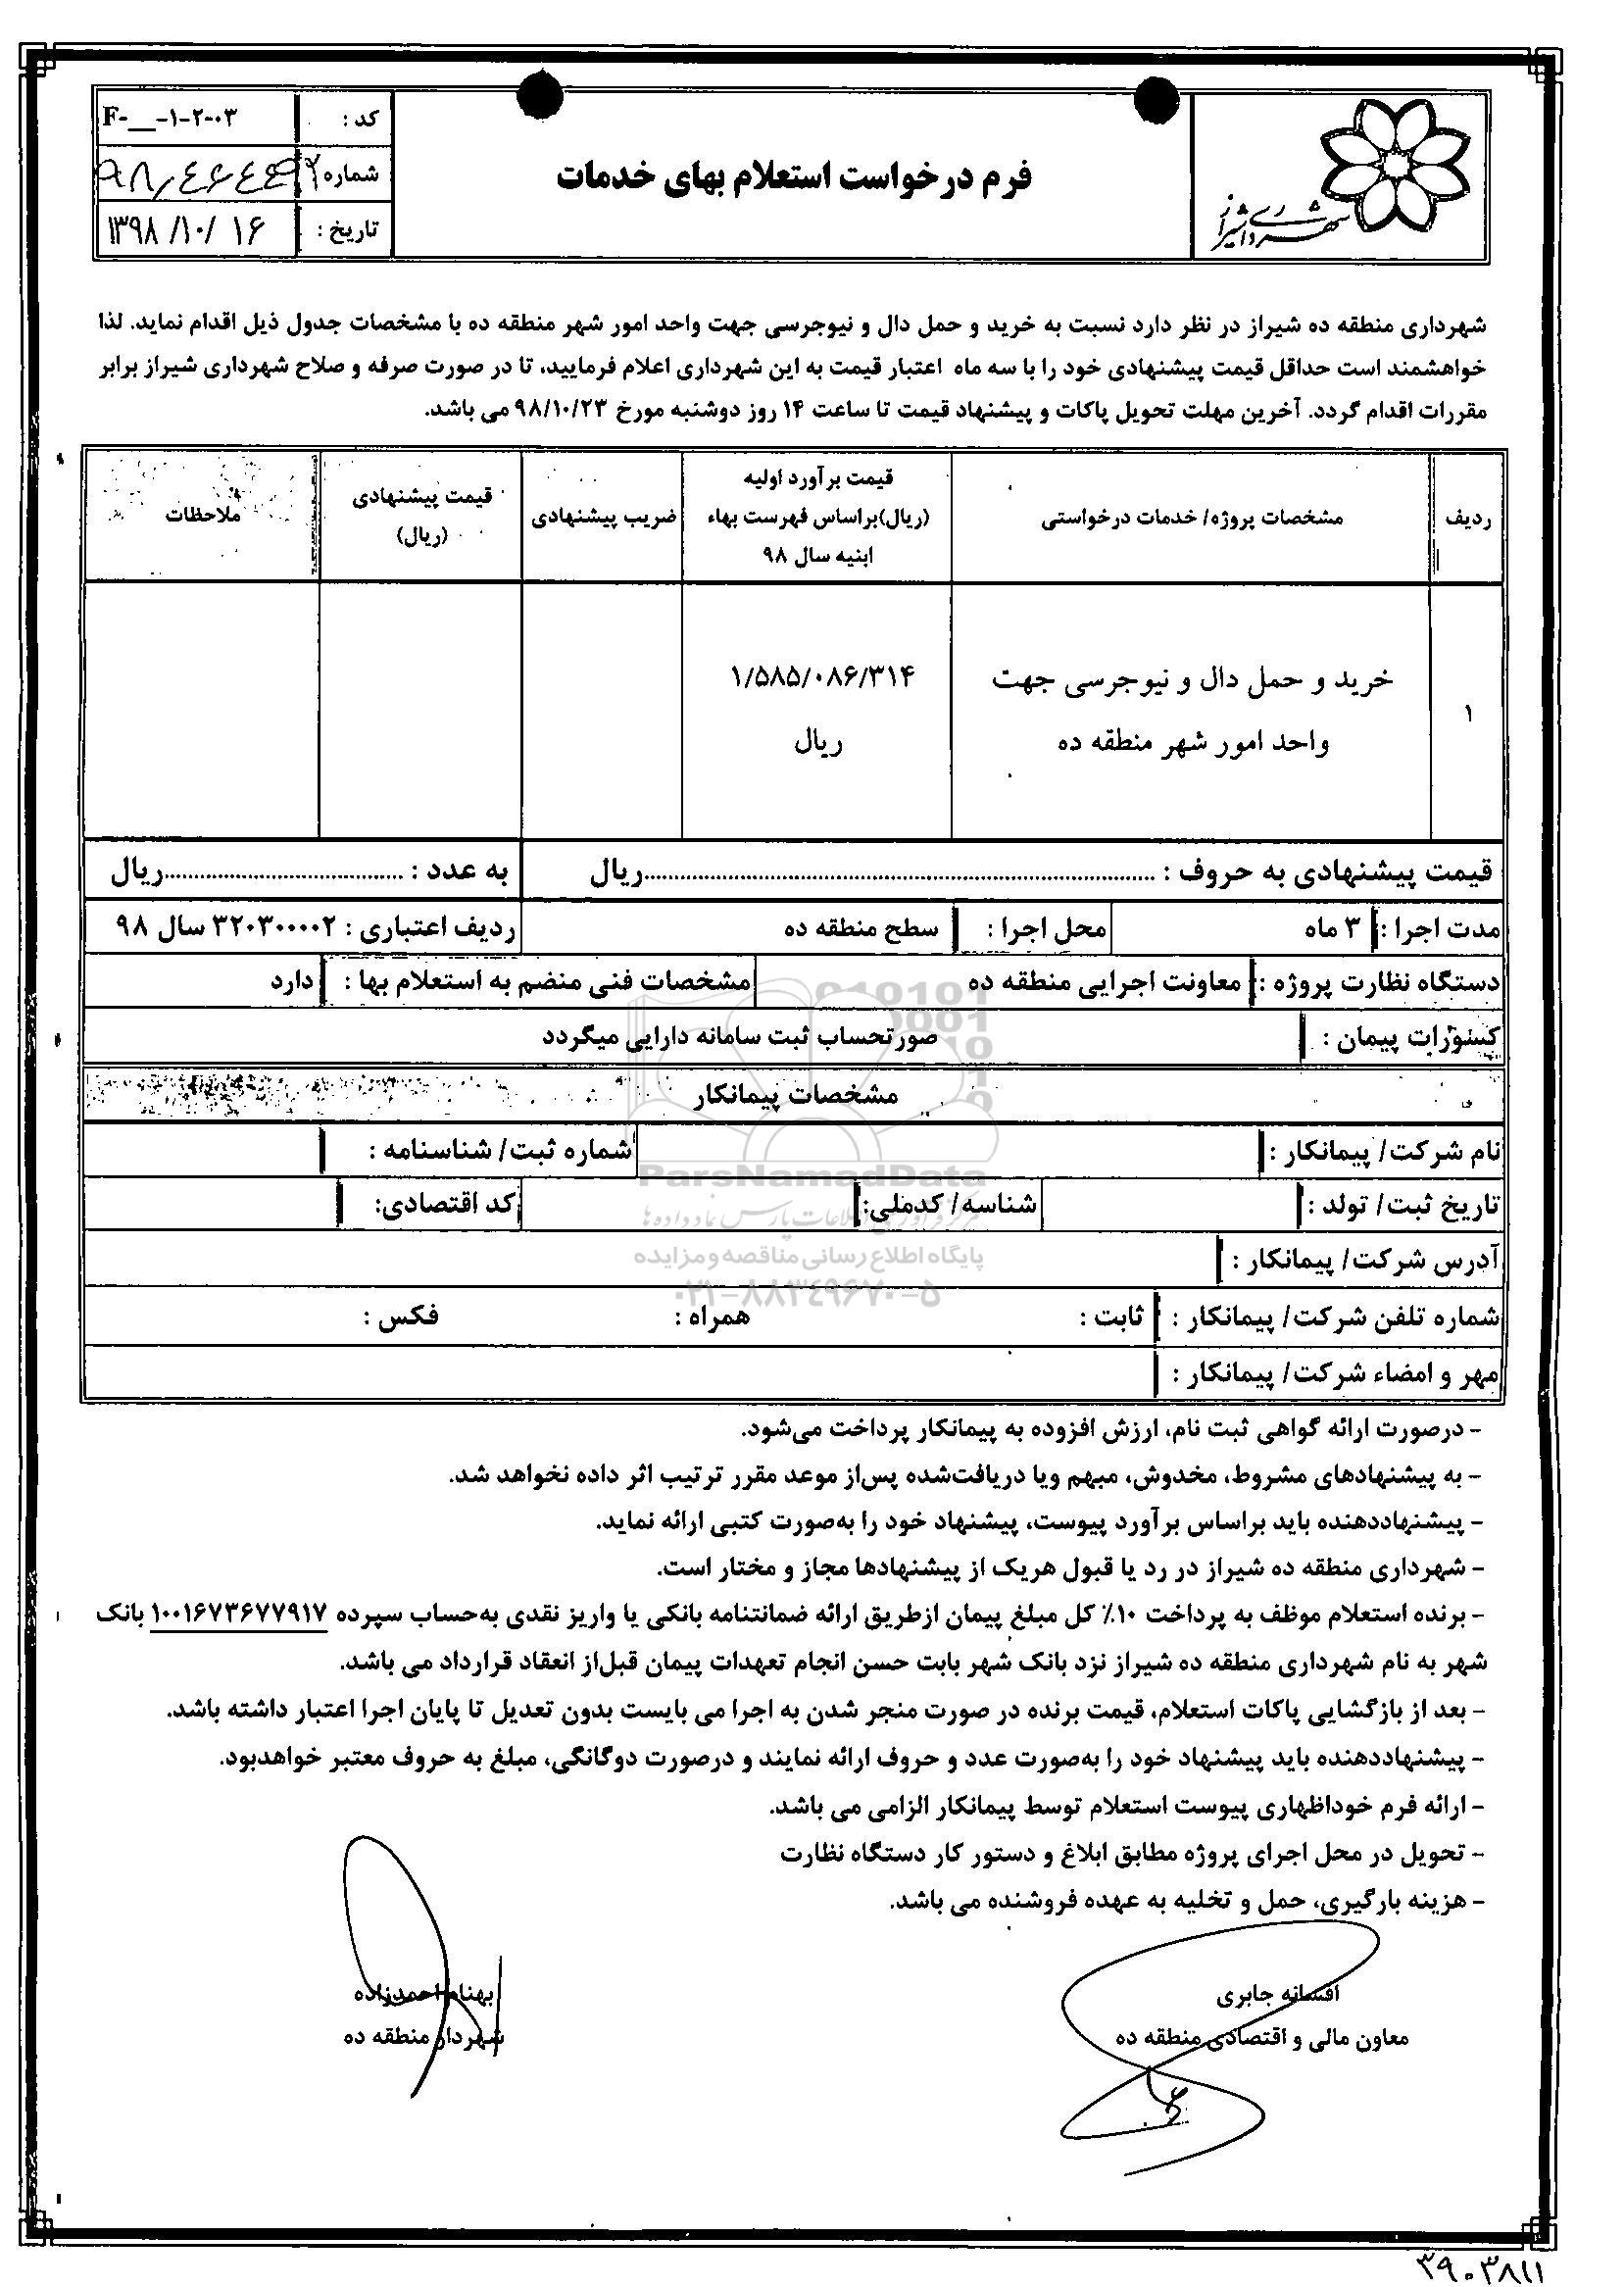 شهرداری شیراز
فرم درخواست استعلام بهای خدمات
کد : F-__-۱-۲-۰۳
شماره :
تاریخ : ۱۳۹۸/۱۰/ ۱۶
شهرداری منطقه ده شیراز در نظر دارد نسبت به خرید و حمل دال و نیوجرسی جهت واحد امور شهر منطقه ده با مشخصات جدول ذیل اقدام نماید. لذا
خواهشمند است حداقل قیمت پیشنهادی خود را با سه ماه اعتبار قیمت به این شهرداری اعلام فرمایید، تا در صورت صرفه و صلاح شهرداری شیراز برابر
مقررات اقدام گردد. آخرین مهلت تحویل پاکات و پیشنهاد قیمت تا ساعت ۱۴ روز دوشنبه مورخ ۹۸/۱۰/۲۳ می باشد.
ردیف
مشخصات پروژه/ خدمات درخواستی
قیمت برآورد اولیه
(ریال)براساس فهرست بهاء
ابنیه سال ۹۸
ضریب پیشنهادی
قیمت پیشنهادی
(ریال)
ملاحظات
۱
خرید و حمل دال و نیوجرسی جهت
واحد امور شهر منطقه ده
۱/۵۸۵/۰۸۶/۳۱۴
ریال
قیمت پیشنهادی به حروف : ..........ریال به عدد : ..........ریال
مدت اجرا : ۳ ماه محل اجرا : سطح منطقه ده ردیف اعتباری : ۳۲۰۳۰۰۰۰۲ سال ۹۸
دستگاه نظارت پروژه : معاونت اجرایی منطقه ده مشخصات فنی منضم به استعلام بها : دارد
کسورات پیمان : صورتحساب ثبت سامانه دارایی میگردد
مشخصات پیمانکار
نام شرکت/ پیمانکار : شماره ثبت/ شناسنامه :
ParsNamadData
تاریخ ثبت/ تولد : شناسه/ کدملی: کد اقتصادی:
آدرس شرکت/ پیمانکار :
پایگاه اطلاع رسانی مناقصه و مزایده
۰۲۱-۸۸۳۴۹۶۷۰-۵
شماره تلفن شرکت/ پیمانکار : ثابت : همراه : فکس :
مهر و امضاء شرکت/ پیمانکار :
- درصورت ارائه گواهی ثبت نام، ارزش افزوده به پیمانکار پرداخت می‌شود.
- به پیشنهادهای مشروط، مخدوش، مبهم ویا دریافت‌شده پس‌از موعد مقرر ترتیب اثر داده نخواهد شد.
- پیشنهاددهنده باید براساس برآورد پیوست، پیشنهاد خود را به‌صورت کتبی ارائه نماید.
- شهرداری منطقه ده شیراز در رد یا قبول هریک از پیشنهادها مجاز و مختار است.
- برنده استعلام موظف به پرداخت ۱۰٪ کل مبلغ پیمان ازطریق ارائه ضمانتنامه بانکی یا واریز نقدی به‌حساب سپرده ۱۰۰۱۶۷۳۶۷۷۹۱۷ بانک
شهر به نام شهرداری منطقه ده شیراز نزد بانک شهر بابت حسن انجام تعهدات پیمان قبل‌از انعقاد قرارداد می باشد.
- بعد از بازگشایی پاکات استعلام، قیمت برنده در صورت منجر شدن به اجرا می بایست بدون تعدیل تا پایان اجرا اعتبار داشته باشد.
- پیشنهاددهنده باید پیشنهاد خود را به‌صورت عدد و حروف ارائه نمایند و درصورت دوگانگی، مبلغ به حروف معتبر خواهدبود.
- ارائه فرم خوداظهاری پیوست استعلام توسط پیمانکار الزامی می باشد.
- تحویل در محل اجرای پروژه مطابق ابلاغ و دستور کار دستگاه نظارت
- هزینه بارگیری، حمل و تخلیه به عهده فروشنده می باشد.
افسانه جابری
معاون مالی و اقتصادی منطقه ده
بهنام احمدزاده
شهردار منطقه ده
۳۹۰۳۸۱۱